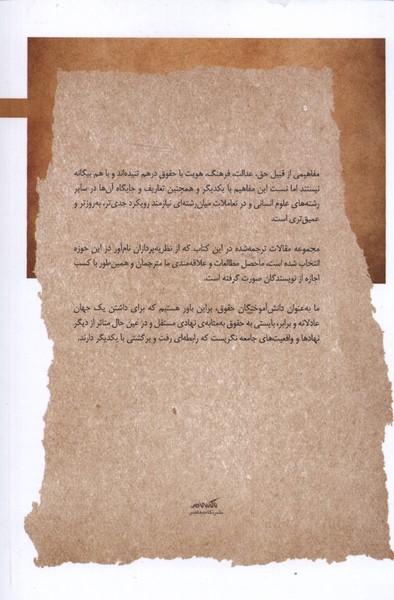 مفاهیمی از قبیل حق، عدالت، فرهنگ، هویت با حقوق درهم تنیده‌اند و با هم بیگانه
نیستند اما نسبت این مفاهیم با یکدیگر و همچنین تعاریف و جایگاه آن‌ها در سایر
رشته‌های علوم انسانی و در تعاملات میان‌رشته‌ای نیازمند رویکرد جدی‌تر، به‌روزتر و
عمیق‌تری است.
مجموعه مقالات ترجمه‌شده در این کتاب، که از نظریه‌پردازان نام‌آور در این حوزه
انتخاب شده است، ماحصل مطالعات و علاقه‌مندی ما مترجمان و همین‌طور با کسب
اجازه از نویسندگان صورت گرفته است.
ما به‌عنوان دانش‌آموختگان حقوق، براین باور هستیم که برای داشتن یک جهان
عادلانه و برابر، بایستی به حقوق به‌مثابه‌ی نهادی مستقل و در عین حال متاثر از دیگر
نهادها و واقعیت‌های جامعه نگریست که رابطه‌ای رفت و برگشتی با یکدیگر دارند.